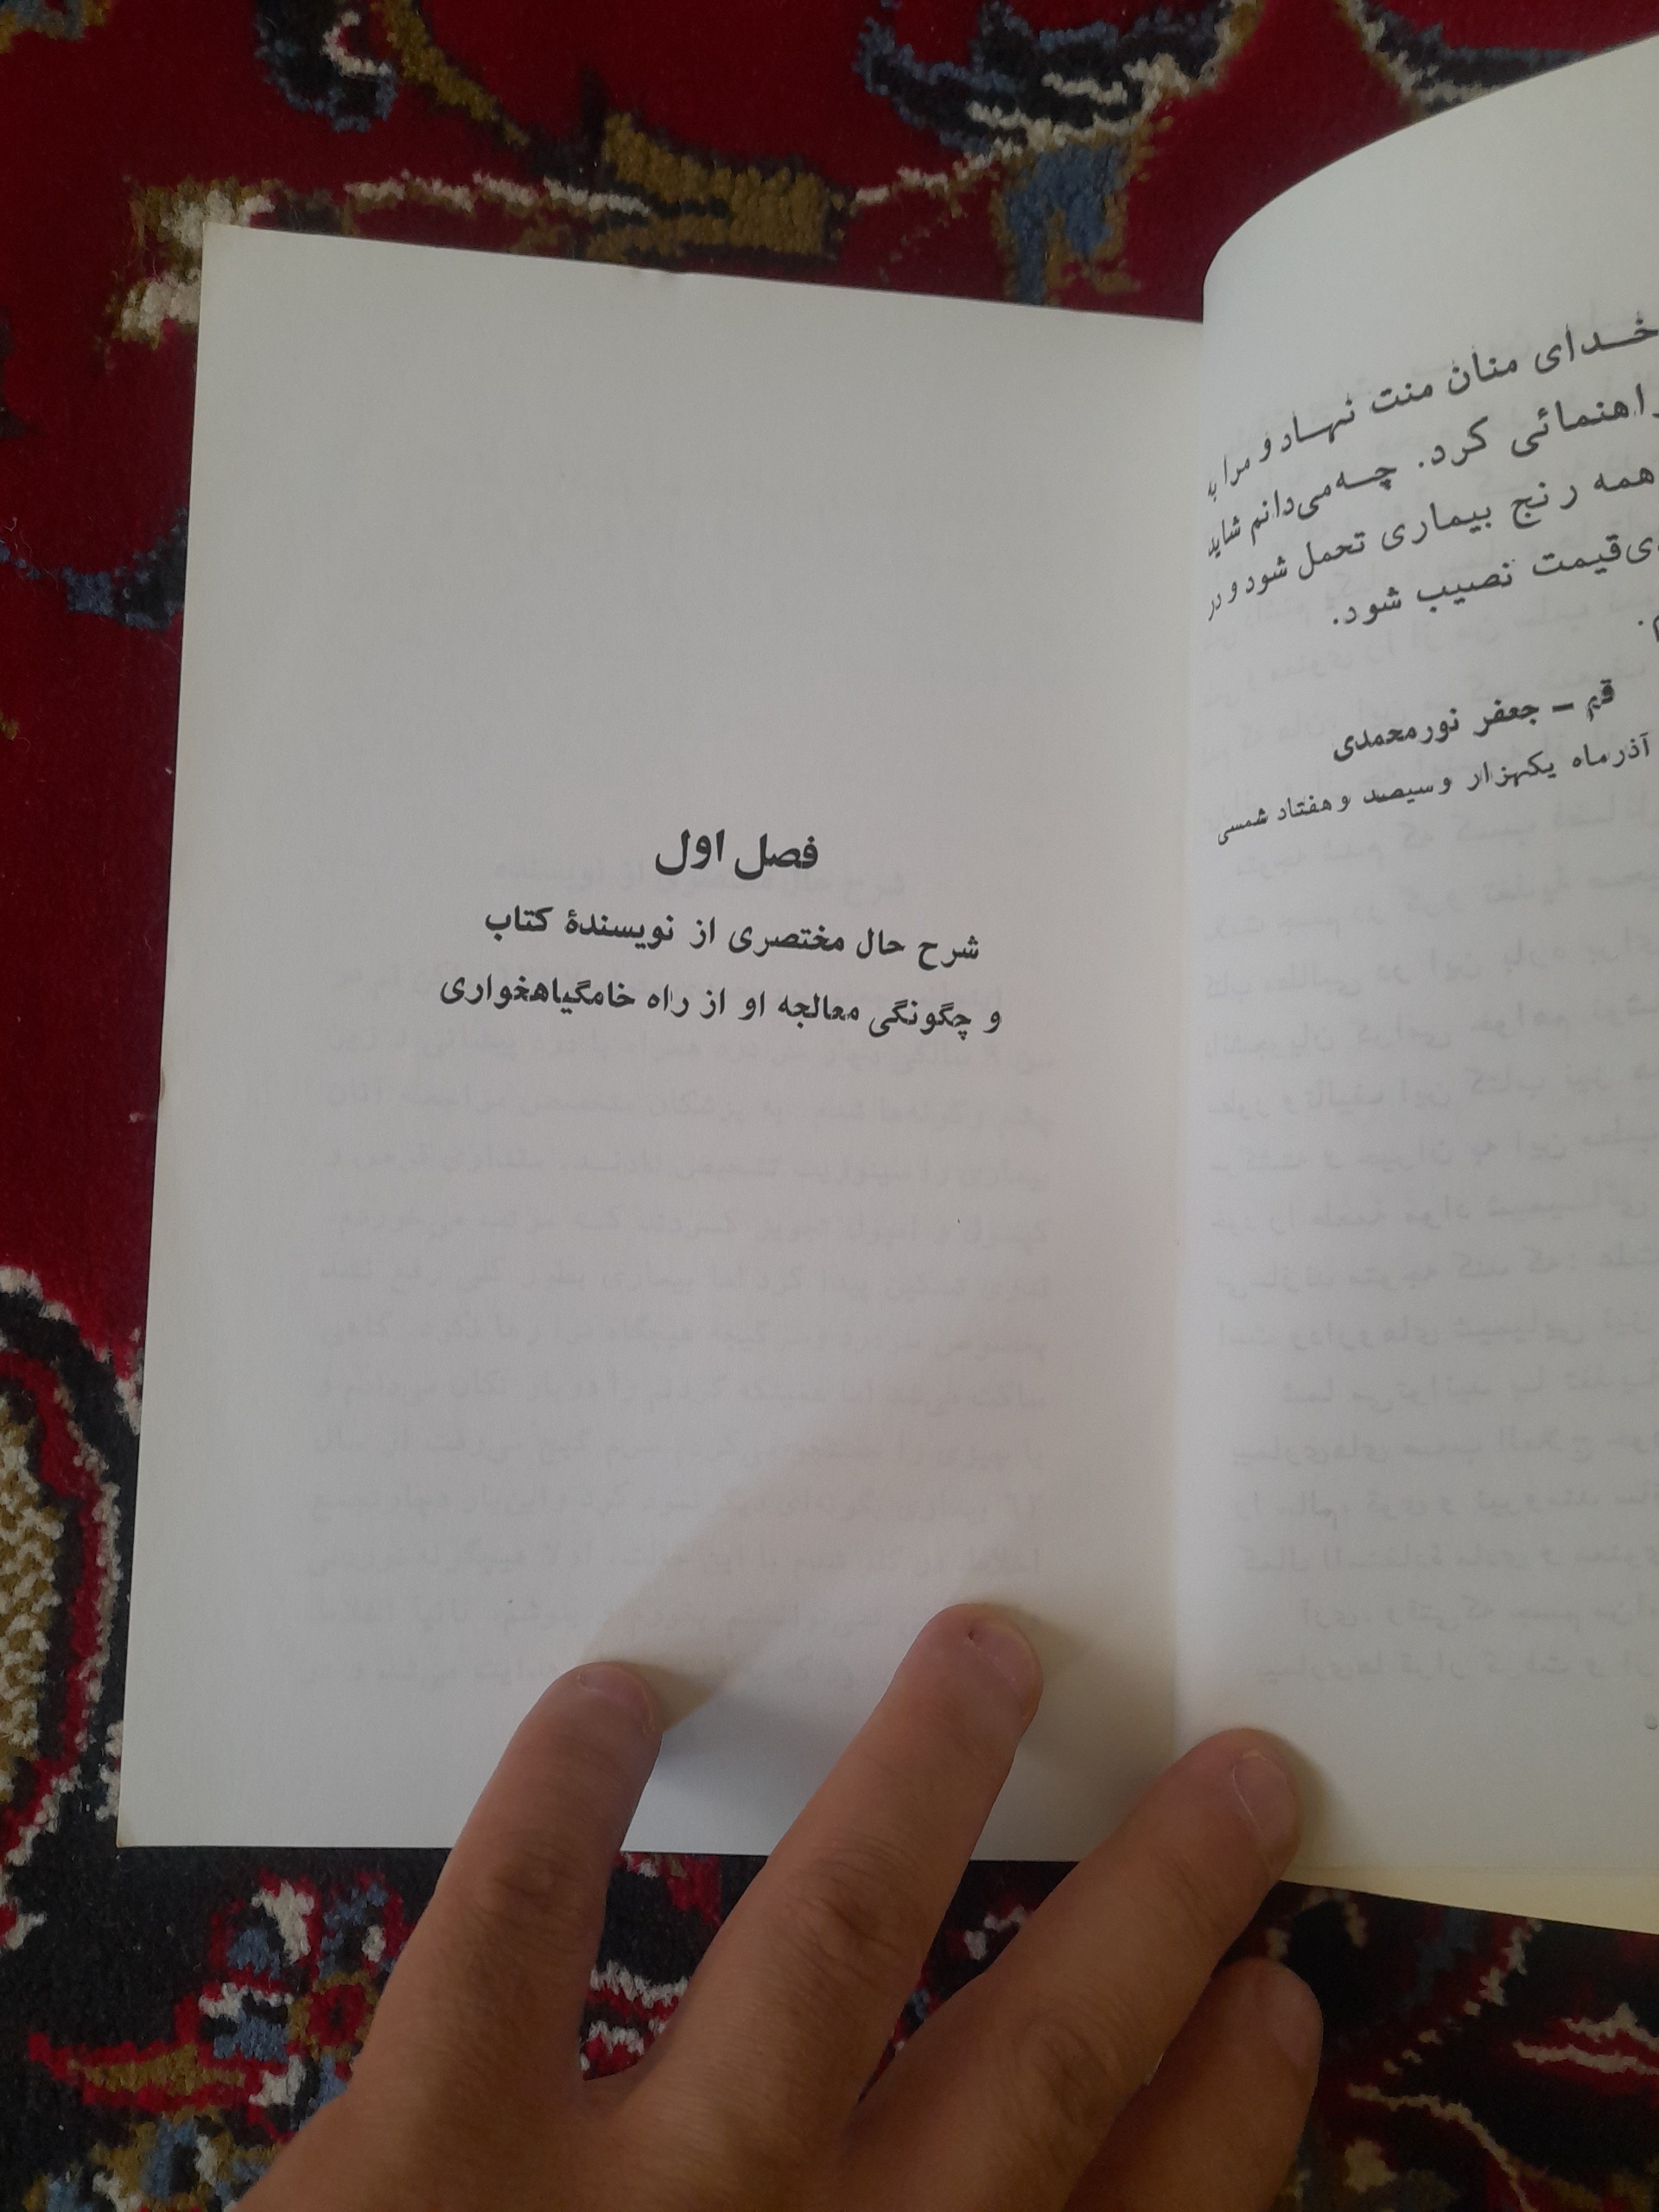 خـدای منان منت نهـاد و مرا به
راهنمائی کرد. چـه‌می‌دانم شاید
همه رنج بیماری تحمل شود و در
ی‌قیمت نصیب شود.
م.
قم ــ جعفر نورمحمدی
آذرماه یکهزار و سیصد و هفتاد شمسی
فصل اول
شرح حال مختصری از نویسندهٔ کتاب
و چگونگی معالجه او از راه خامگیاهخواری